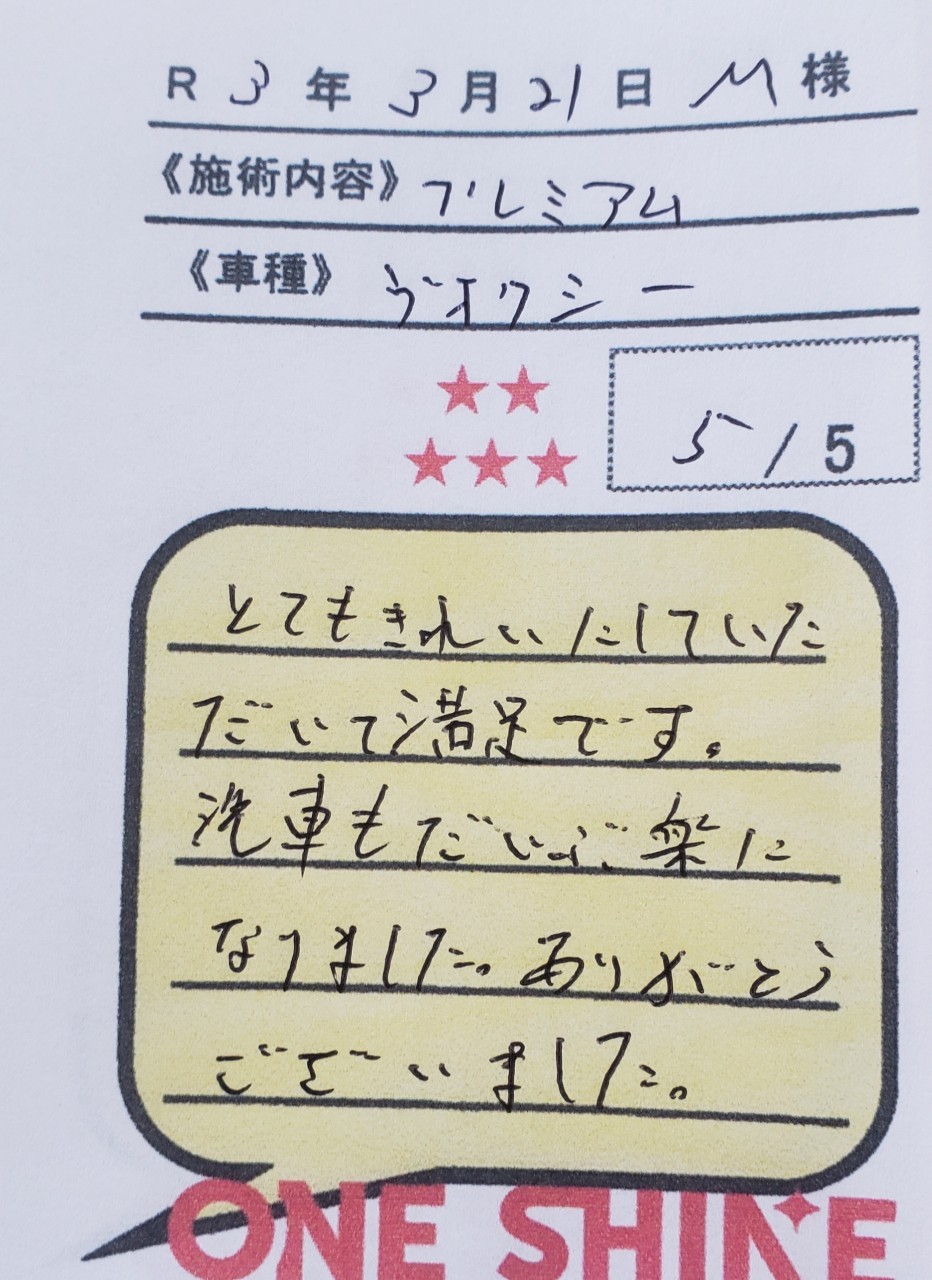 R 3年 3月 21日 M 様
《施術内容》プレミアム
《車種》 ヴオクシー
★★
★★★
5/5
とてもきれいにしていた
だいて満足です。
洗車もだいぶ楽に
なりました。ありがとう
ございました。
ONE SHINE